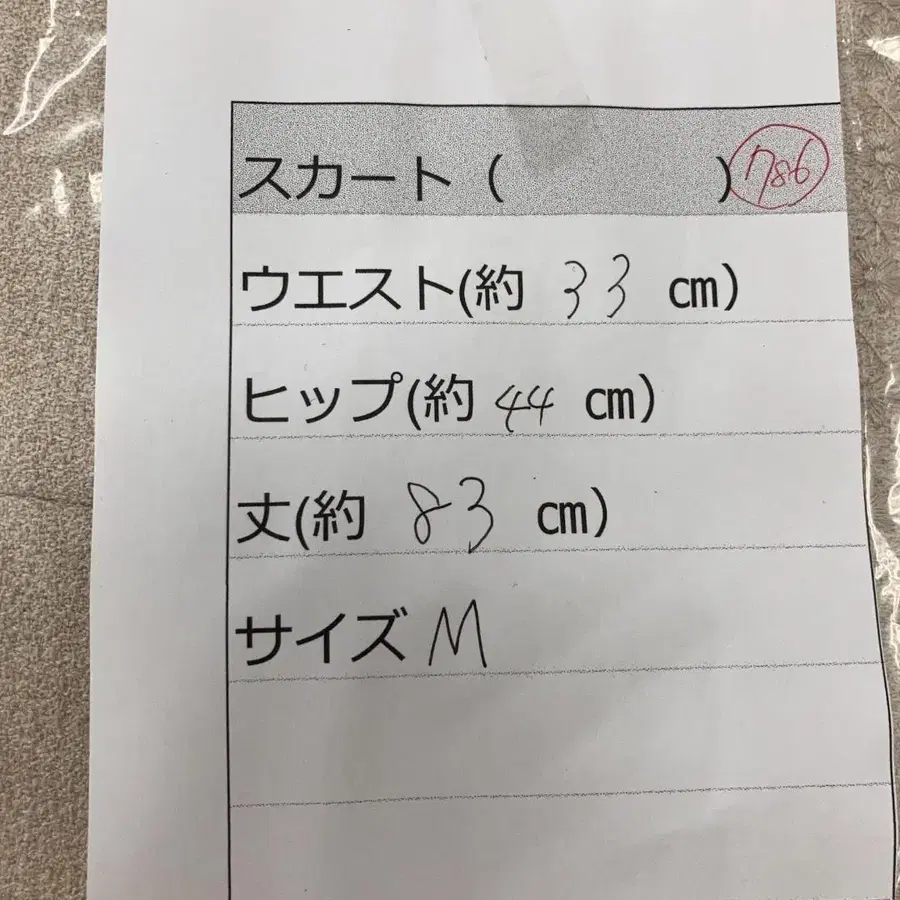 スカート（　　　）786
ウエスト(約 33 cm）
ヒップ(約 44 cm）
丈(約 83 cm）
サイズ M